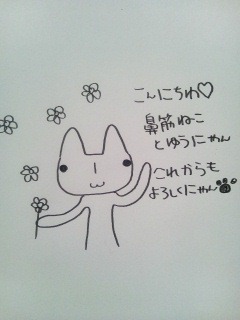 こんにちわ♡
鼻筋ねこ
とゆうにゃん
これからも
よろしくにゃん